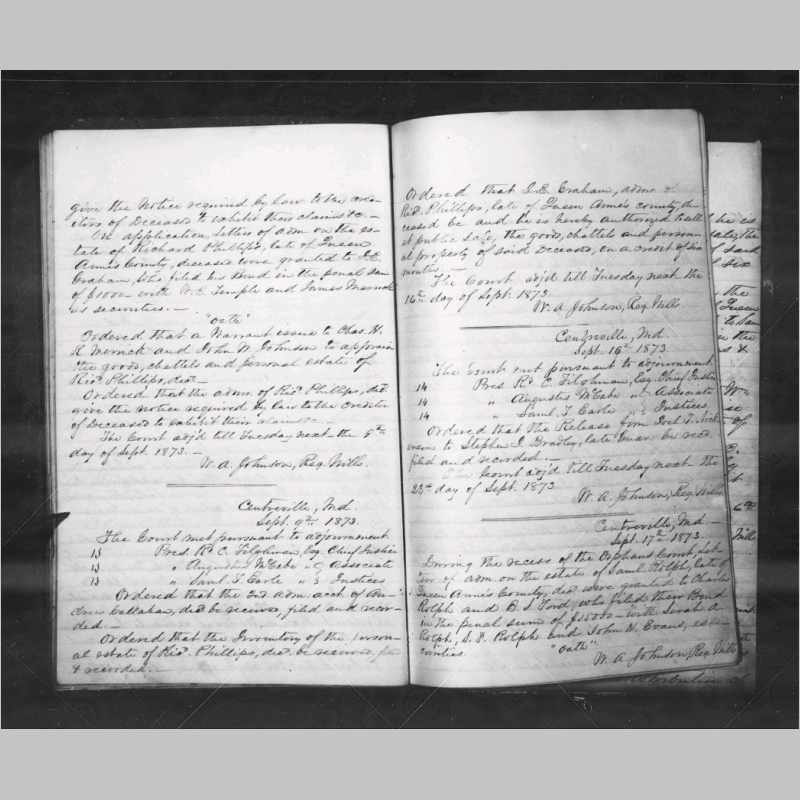 give the Notice required by law to the cred-
itors of Deceased to exhibit their claims &c. -
On application, letters of adm on the es-
tate of Richard Phillips, late of Queen
Anne's County, deceased were granted to
Graham, who filed his Bond in the penal sum
of with W. E. Temple and James Merrick
as securities. -
"oath"
Ordered that a Warrant issue to Chas. H.
R. Merrick and John W. Johnson to appraise
the goods, chattels and personal estate of
Ric'd Phillips, dec'd. -
Ordered that the admr. of Ric'd Phillips, dec'd
give the notice required by law to the Creditors
of Deceased to exhibit their claims &c. -
The Court adj'd till Tuesday next the 9th
day of Sept. 1873. -
W. A. Johnson, Reg. Wills.
Centreville, Md.
Sept. 9th 1873.
The Court met pursuant to adjournment
13 Pres. R'd C. Tilghman, Esq. Chief Justice
13 " Augustus McCabe " Associate
13 " Saml. T. Earle " Justices
Ordered that the 2nd adm. acct. of An-
drew Callahan, dec'd be receive, filed and recor-
ded. -
Ordered that the Inventory of the person-
al estate of Ric'd. Phillips, dec'd. be received,
& recorded. -
Ordered that Graham, admr. of
Ric'd. Phillips, late of Queen Anne's county, de-
ceased be and he is hereby authorized to sell
at public sale, the goods, chattels and person-
al property of said Deceased, on a credit of six
months.
The Court adj'd till Tuesday next the
16th day of Sept. 1873.
W. A. Johnson, Reg. Wills.
Centreville, Md.
Sept. 16th 1873.
The Court met pursuant to adjournment
14 Pres. R'd C. Tilghman, Esq. Chief Justice
14 " Augustus McCabe " Associate
14 " Saml. T. Earle " Justices
Ordered that the Release from
to Stephen J. Bradley, late Guar. be rec'd
filed and recorded. -
Court adj'd till Tuesday next the
23rd day of Sept. 1873
W. A. Johnson, Reg. Wills
Centreville, Md. -
Sept. 17th 1873.
During the recess of the Orphans Court, let-
ters of adm. on the estate of Saml Rolph, late of
Queen Anne's County, dec'd were granted to Charles
Rolph and B. S. Ford, who filed their Bond
in the penal sum of with Sarah A
Rolph, S. P. Rolph and John W. Evans, as se-
curities "oath"
W. A. Johnson, Reg. Wills